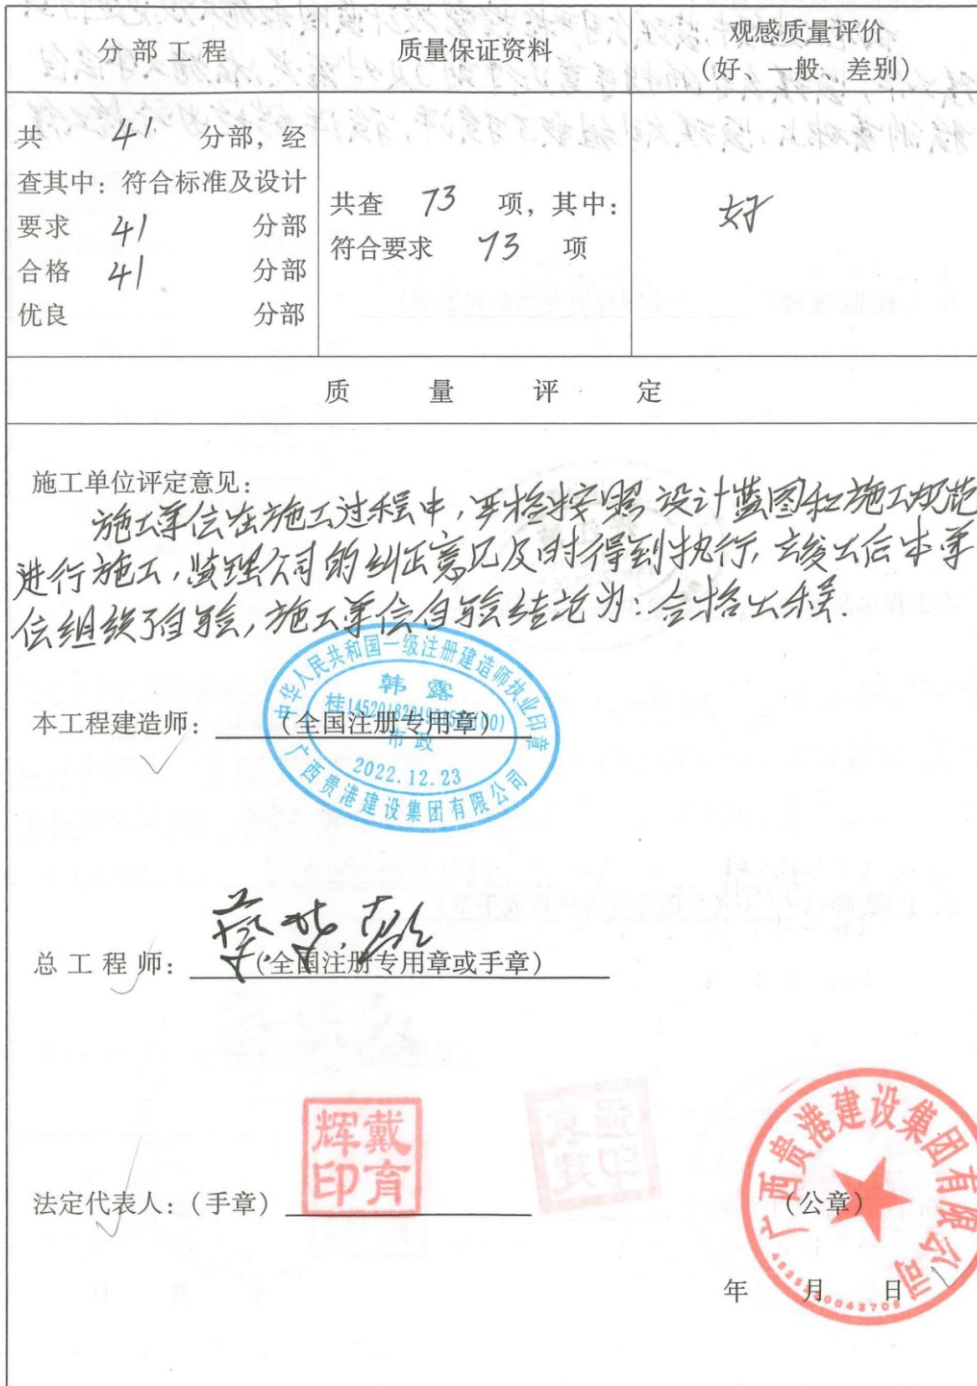 分部工程
质量保证资料
观感质量评价
（好、一般、差别）
共 41 分部，经
查其中：符合标准及设计
要求 41 分部
合格 41 分部
优良 分部
共查 73 项，其中：
符合要求 73 项
好
质 量 评 定
施工单位评定意见：
施工单位在施工过程中，严格按照设计蓝图和施工规范
进行施工，监理公司的纠正意见及时得到执行，竣工后本单
位组织了自验，施工单位自验结论为：合格工程.
中华人民共和国一级注册建造师执业印章
韩 露
本工程建造师： （全国注册专用章）
市政
2022.12.23
广西贵港建设集团有限公司
总工程师： （全国注册专用章或手章）
戴育辉印
法定代表人：（手章）
广西贵港建设集团有限公司
（公章）
年 月 日